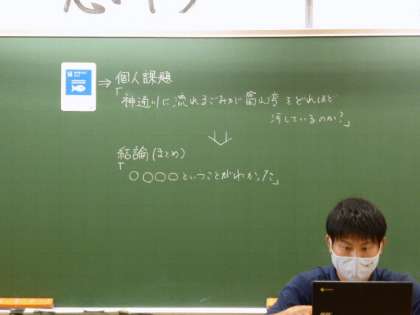 ⇒ 個人課題
「神通川に流れるごみが富山湾をどれほど
汚しているのか?」
結論(まとめ)
「○○○○ということがわかった」